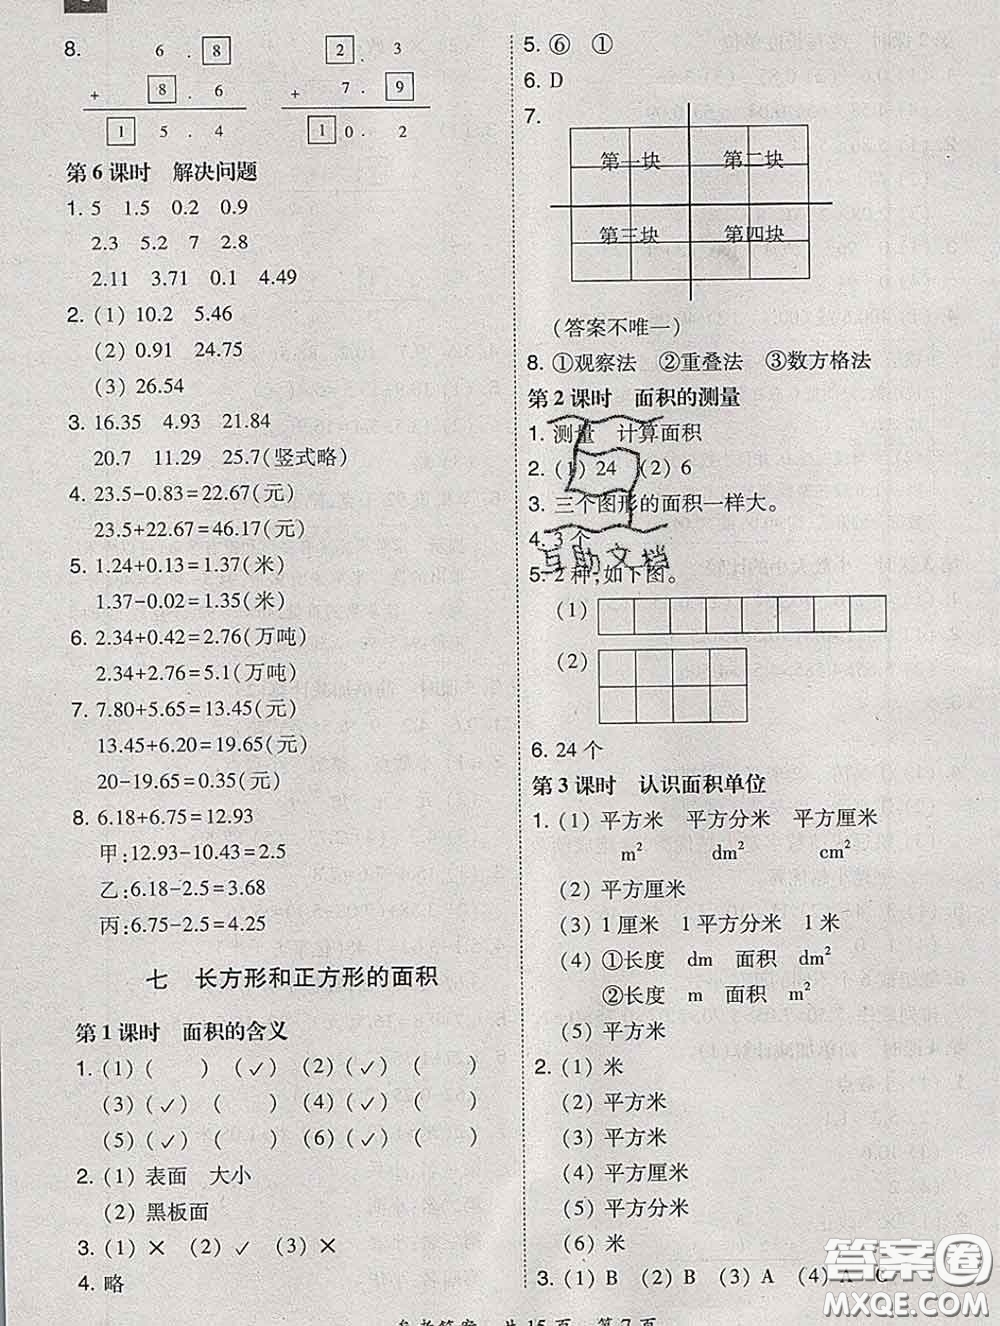 8.
6 . 8
+ 8 . 6
1 5 . 4
2 . 3
+ 7 . 9
1 0 . 2
第6课时 解决问题
1. 5 1.5 0.2 0.9
2.3 5.2 7 2.8
2.11 3.71 0.1 4.49
2. (1) 10.2 5.46
(2) 0.91 24.75
(3) 26.54
3. 16.35 4.93 21.84
20.7 11.29 25.7(竖式略)
4. 23.5-0.83=22.67(元)
23.5+22.67=46.17(元)
5. 1.24+0.13=1.37(米)
1.37-0.02=1.35(米)
6. 2.34+0.42=2.76(万吨)
2.34+2.76=5.1(万吨)
7. 7.80+5.65=13.45(元)
13.45+6.20=19.65(元)
20-19.65=0.35(元)
8. 6.18+6.75=12.93
甲:12.93-10.43=2.5
乙:6.18-2.5=3.68
丙:6.75-2.5=4.25
七 长方形和正方形的面积
第1课时 面积的含义
1. (1) ( ) (✓) (2) (✓) ( )
(3) (✓) ( ) (4) (✓) ( )
(5) (✓) ( ) (6) (✓) ( )
2. (1) 表面 大小
(2) 黑板面
3. (1) ✕ (2) ✓ (3) ✕
4. 略
5. ⑥ ①
6. D
7.
第一块 第二块
第三块 第四块
(答案不唯一)
8. ①观察法 ②重叠法 ③数方格法
第2课时 面积的测量
1. 测量 计算面积
2. (1) 24 (2) 6
3. 三个图形的面积一样大。
4. 3个
互助文档
5. 2种,如下图。
(1)
(2)
6. 24个
第3课时 认识面积单位
1. (1) 平方米 平方分米 平方厘米
m² dm² cm²
(2) 平方厘米
(3) 1厘米 1平方分米 1米
(4) ①长度 dm 面积 dm²
②长度 m 面积 m²
(5) 平方米
2. (1) 米
(2) 平方米
(3) 平方米
(4) 平方厘米
(5) 平方分米
(6) 米
3. (1) B (2) B (3) A (4) A C
答案圈
MXQE.COM
参考答案 共15页 第7页